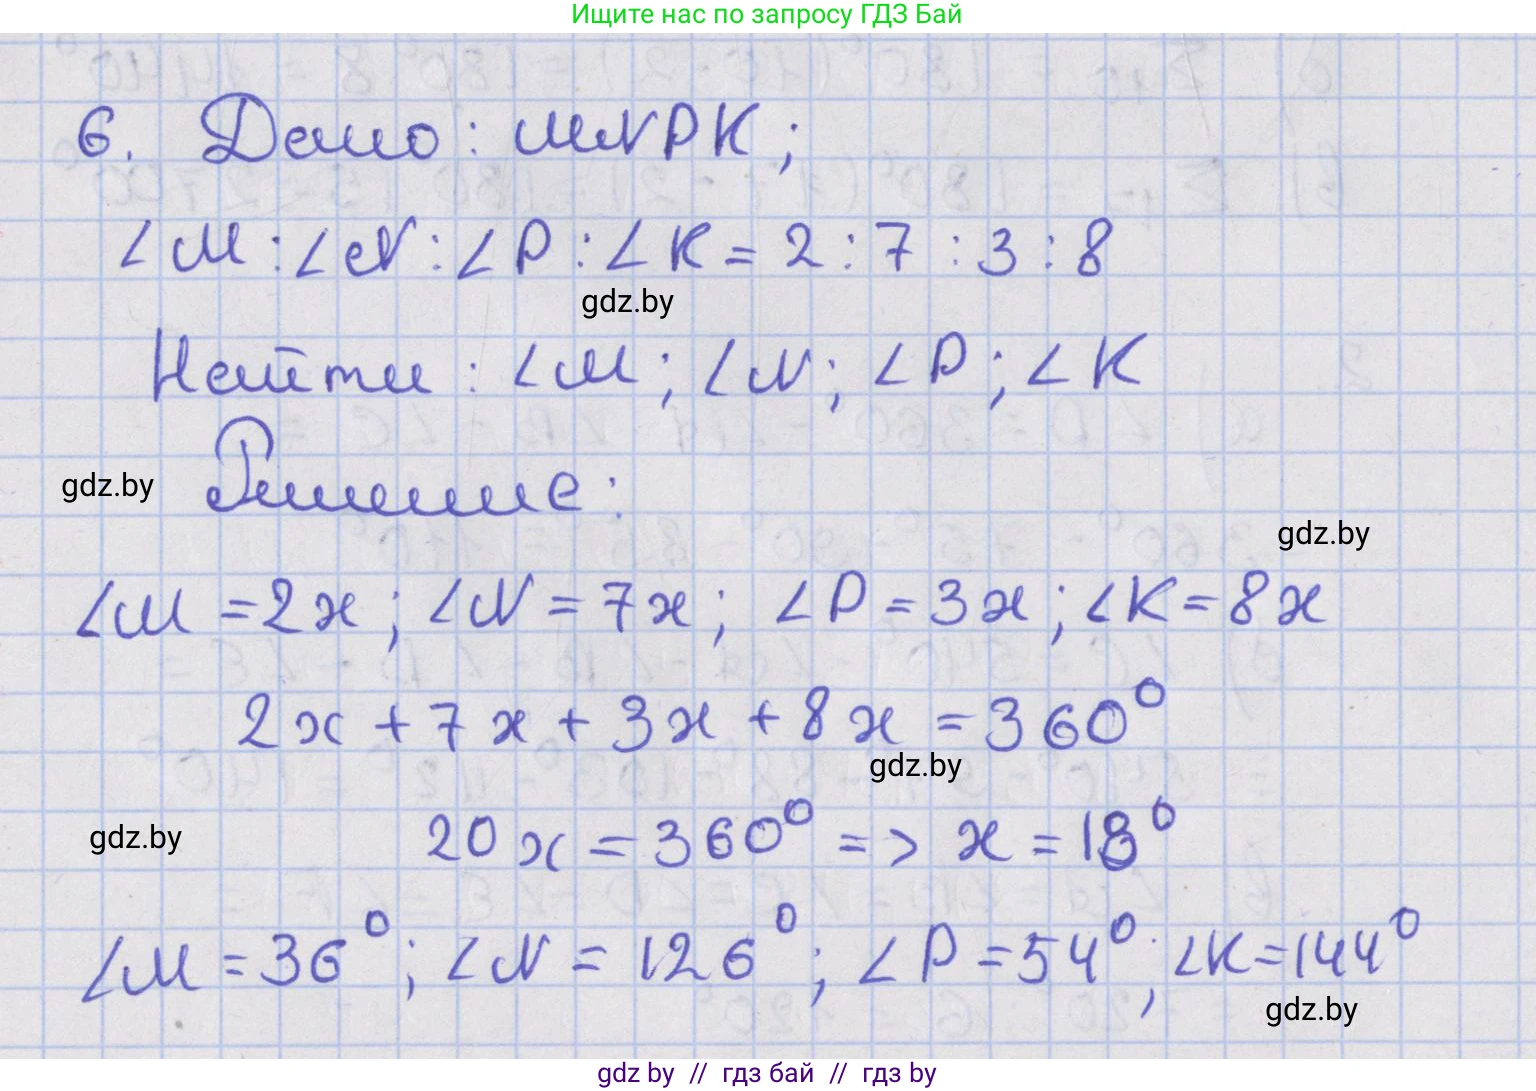 Ищите нас по запросу ГДЗ Бай
6. Дано: MNPK;
∠M:∠N:∠P:∠K=2:7:3:8
gdz.by
Найти: ∠M; ∠N; ∠P; ∠K
gdz.by Решение:
gdz.by
∠M=2x; ∠N=7x; ∠P=3x; ∠K=8x
2x+7x+3x+8x=360°
gdz.by
gdz.by 20x=360° => x=18°
∠M=36°; ∠N=126°; ∠P=54°; ∠K=144°
gdz.by
gdz by // гдз бай // гдз by